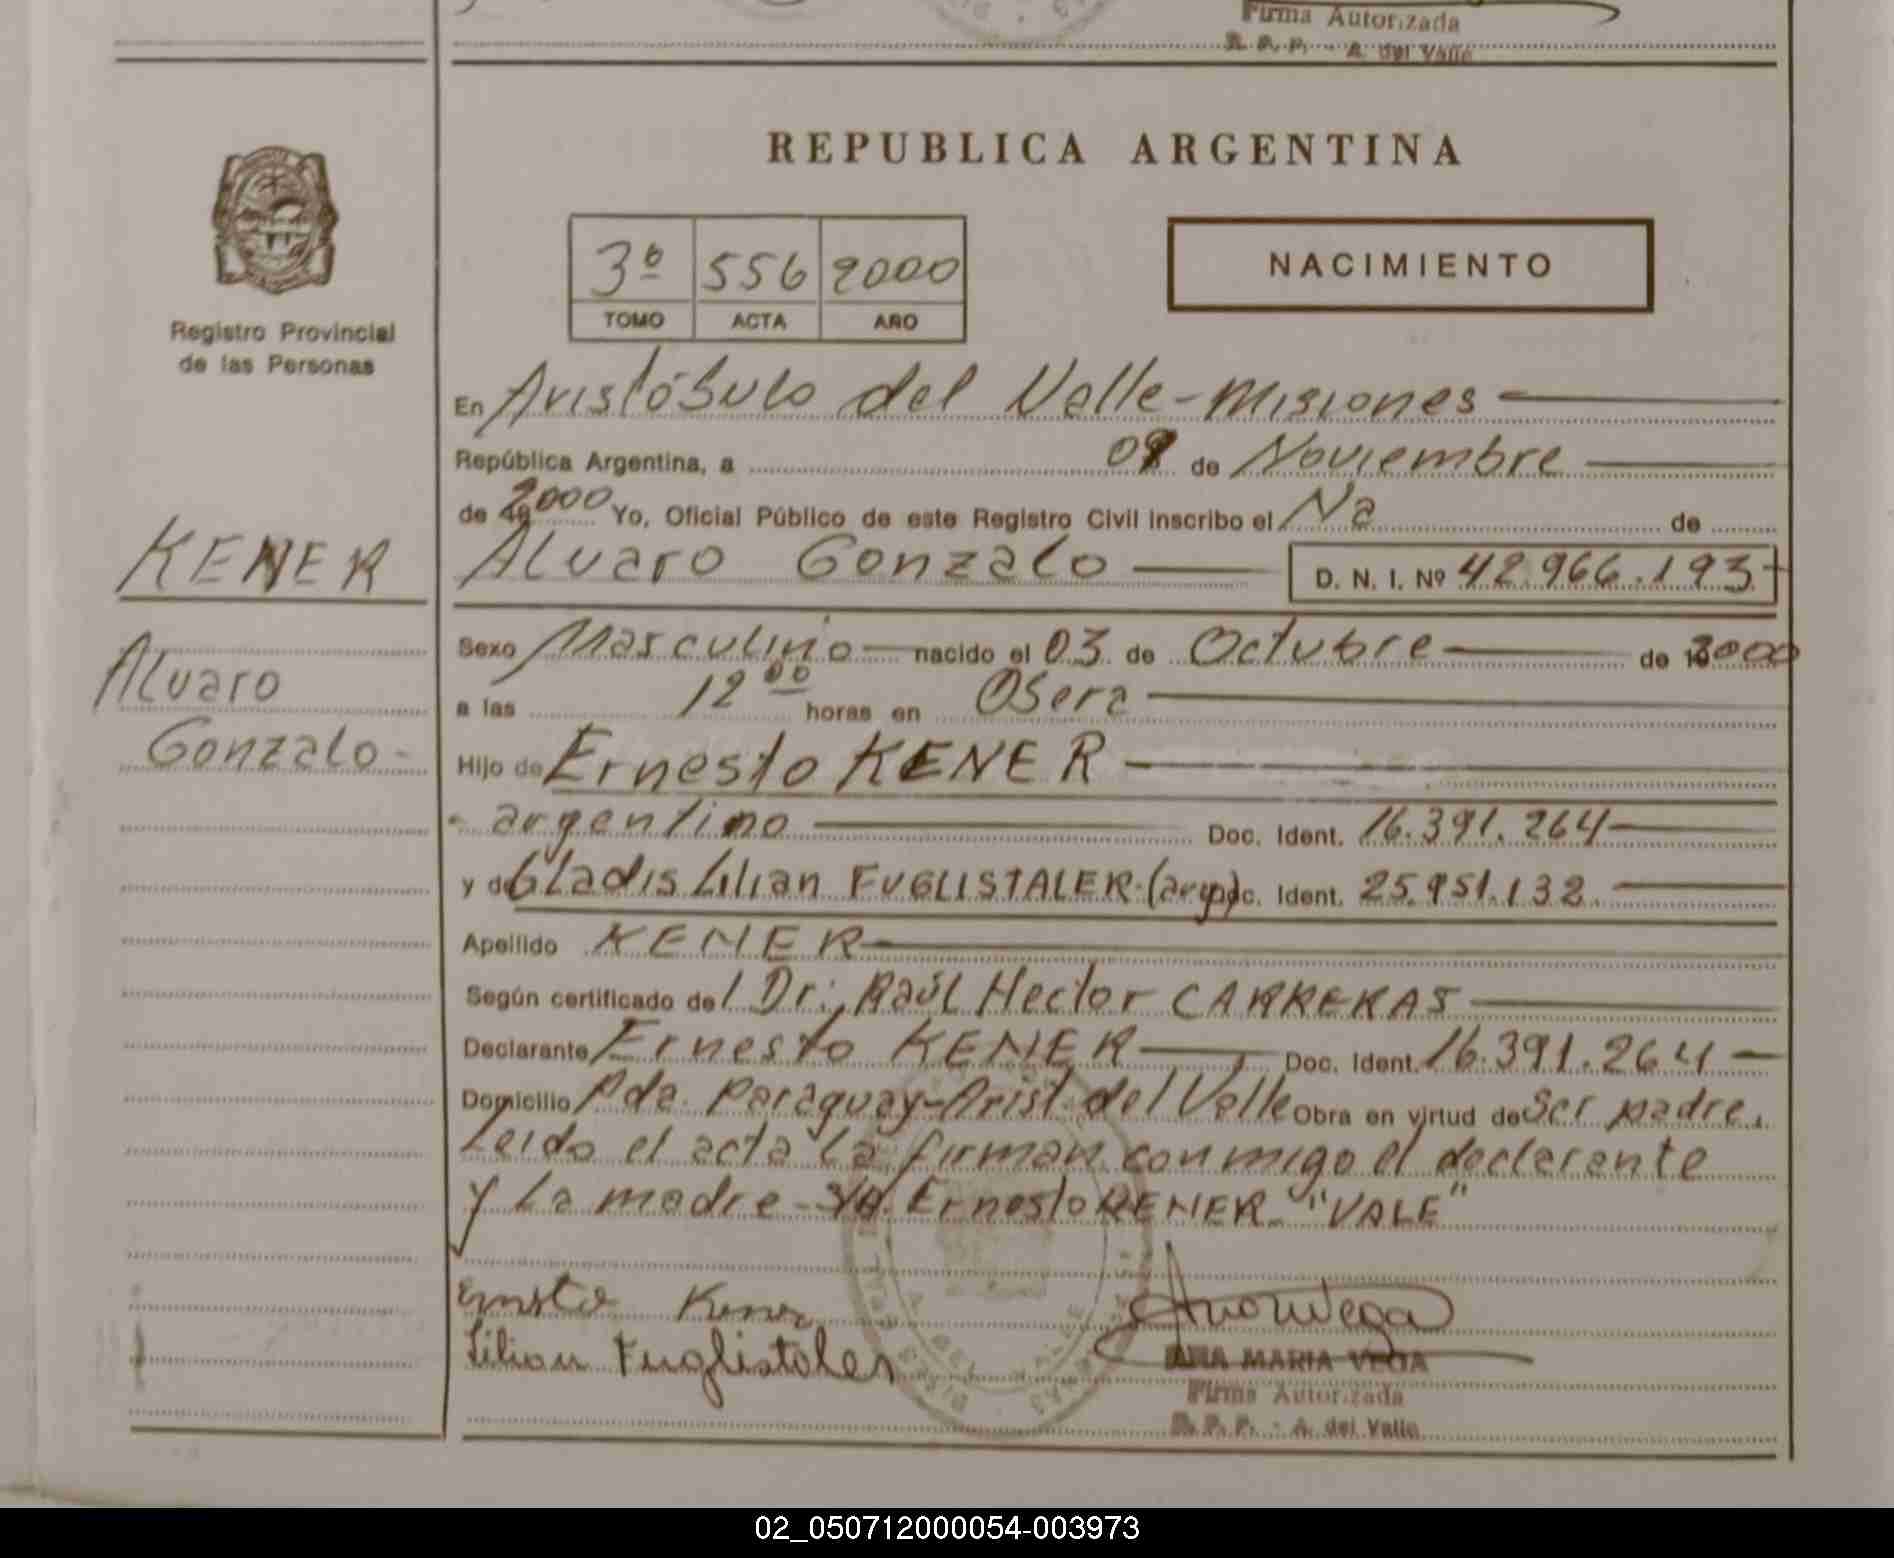 Firma Autorizada
R. P. P. - A. del Valle
REPUBLICA ARGENTINA
3º 556 2000
TOMO ACTA AÑO
NACIMIENTO
Registro Provincial
de las Personas
En Aristóbulo del Valle - Misiones
República Argentina, a 08 de Noviembre
de 2000 Yo, Oficial Público de este Registro Civil inscribo el Na de
KENER
Alvaro Gonzalo D. N. I. Nº 42.966.193
Alvaro
Gonzalo -
Sexo Masculino nacido el 03 de Octubre de 2000
a las 12 00 horas en Obera
Hijo de Ernesto KENER
argentino Doc. Ident. 16.391.264
y de Gladis Lilian FUGLISTALER (arg) Doc. Ident. 25.951.132
Apellido KENER
Según certificado del Dr. Raúl Hector CARRERAS
Declarante Ernesto KENER Doc. Ident. 16.391.264
Domicilio Pda. Paraguay - Arist. del Valle Obra en virtud de Ser padre.
Leido el acta la firman conmigo el declarante
y la madre - Ernesto KENER "VALE"
Ernsto Kener
Lilian Fuglistaler
Ana M Vega
ANA MARIA VEGA
Firma Autorizada
R. P. P. - A. del Valle
02_050712000054-003973